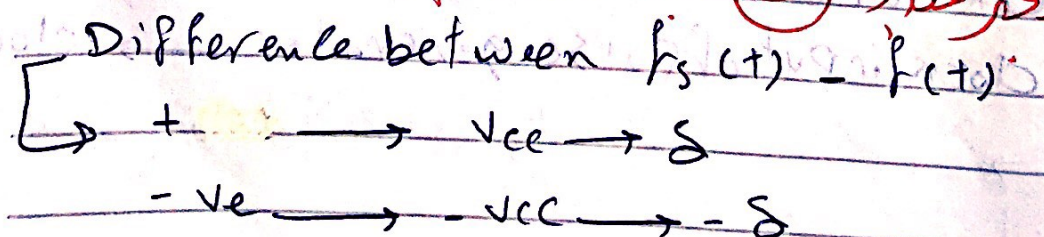 Difference between fs (t) - f(t)
+ → Vcc → δ
- ve → - Vcc → - δ